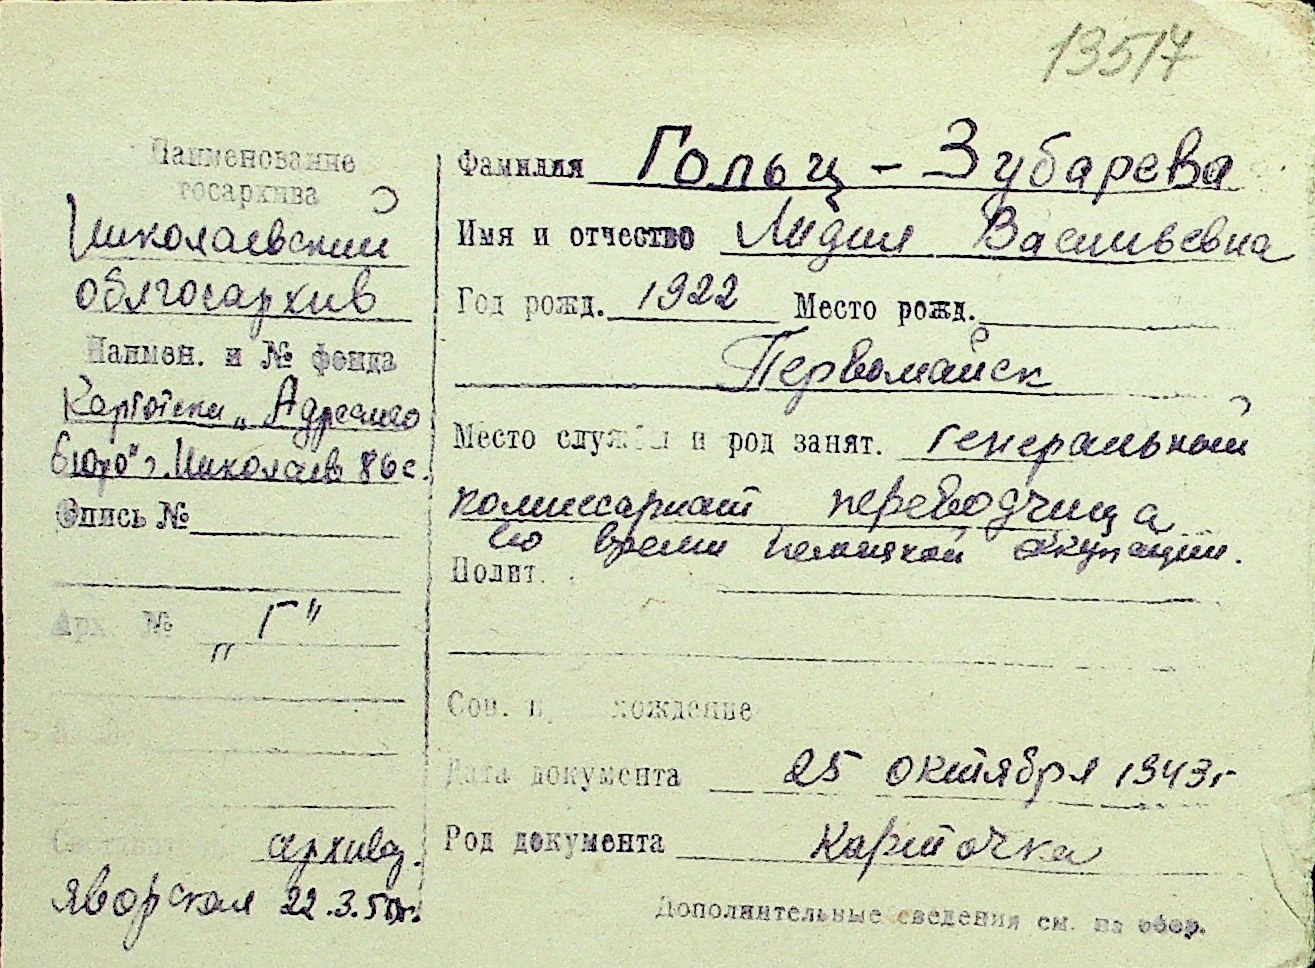 13517
Наименование
госархива
Николаевский
облгосархив
Наимен. и № фонда
Картотека „Адресного
бюро" г. Николаев 86 с.
Опись №
Арх. № „Г"
архивар.
Яворская 22.3.50г.
Фамилия Гольц - Зубарева
Имя и отчество Лидия Васильевна
Год рожд. 1922 Место рожд.
Первомайск
Место службы и род занят. генеральный
комиссариат переводчица
во время немецкой окупации.
Полит.
Соц. происхождение
Дата документа 25 октября 1943 г
Род документа карточка
Дополнительные сведения см. на обор.